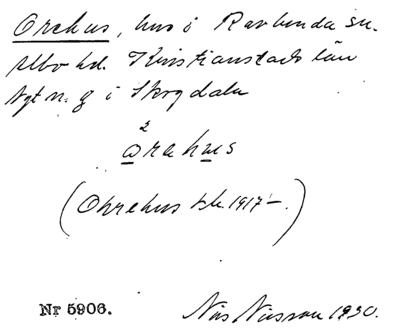 Orehus, hus i Ravlunda sn.
Albo hd. Kristianstads län
Nyt n. g i Skogdala
2
årehus
(Ohrehus kbk. 1917–.)
Nr 5906.
Nils Nilsson 1930.